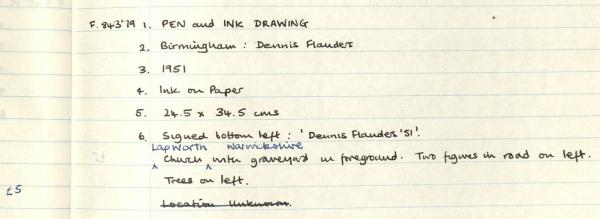 F. 843'79 1. PEN and INK DRAWING
2. Birmingham : Dennis Flanders
3. 1951
4. Ink on Paper
5. 24.5 x 34.5 cms
6. Signed bottom left : 'Dennis Flanders '51'.
Lapworth Warwickshire
Church with graveyard in foreground. Two figures in road on left.
Trees on left.
Location Unknown.
£5